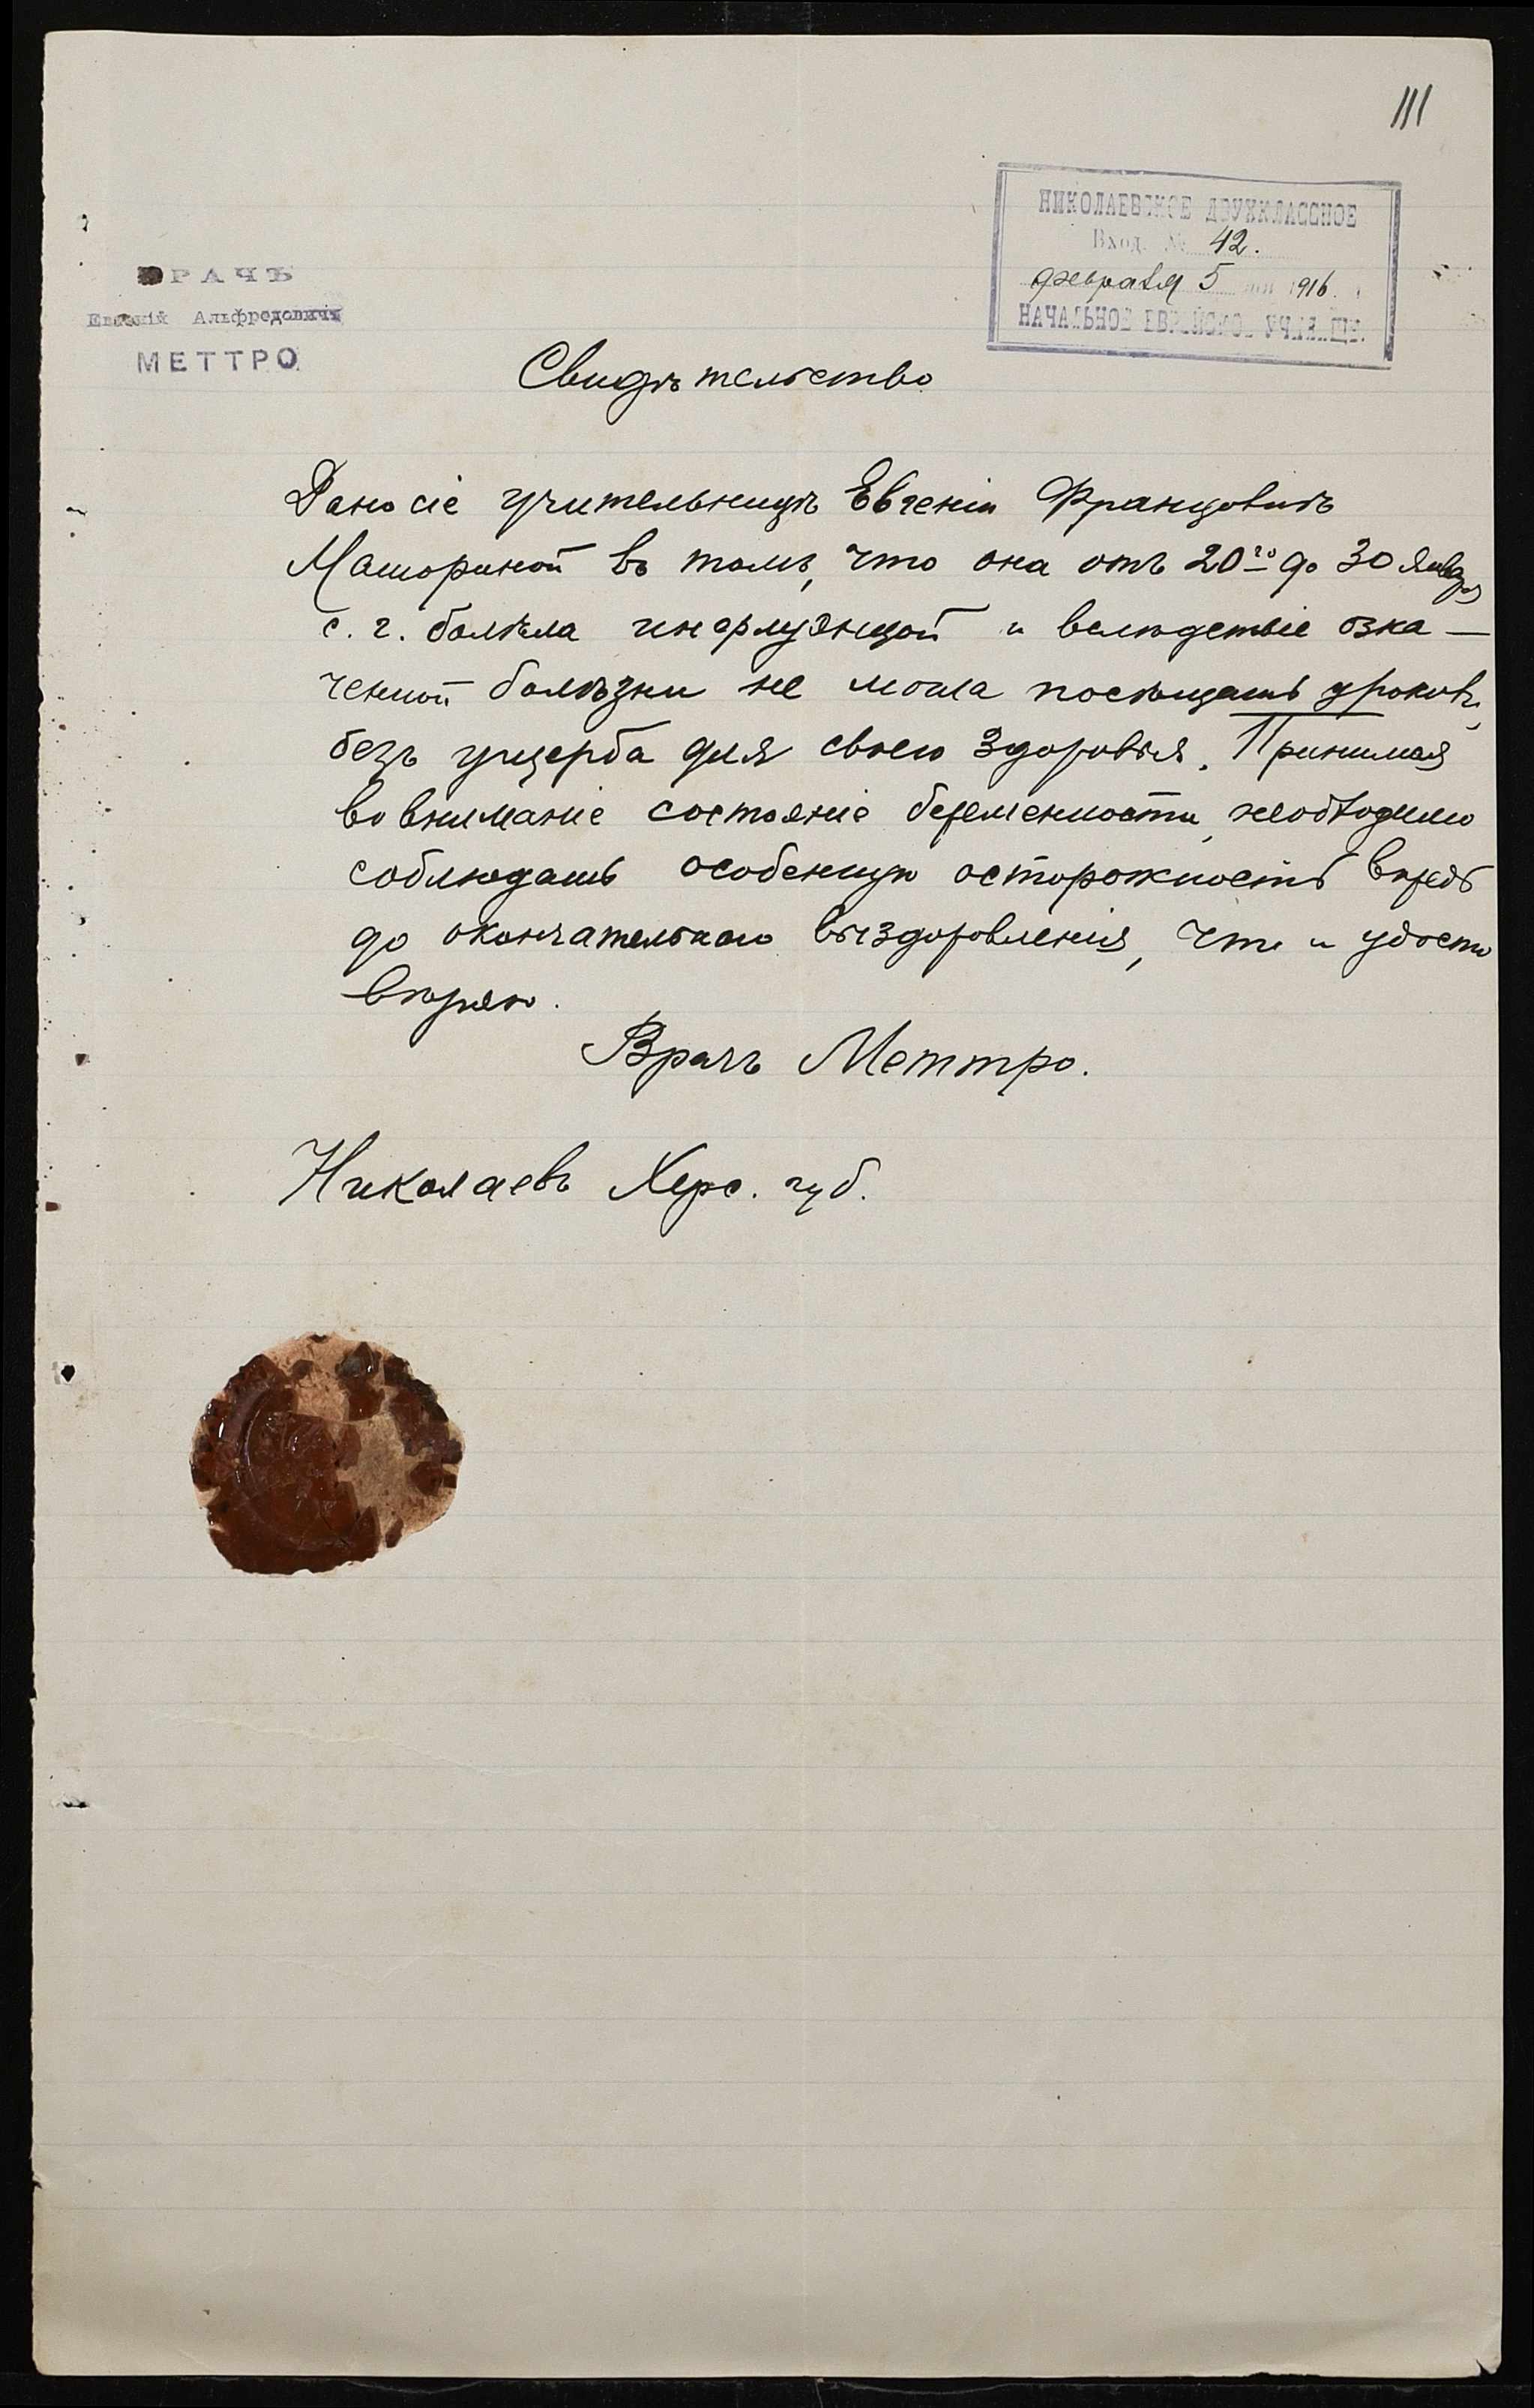 111
НИКОЛАЕВСКОЕ ДВУХКЛАССНОЕ
Вход. № 42.
февраля 5 1916
НАЧАЛЬНОЕ ЕВРЕЙСКОЕ УЧИЛИЩЕ
ВРАЧЪ
Евгеній Альфредовичъ
МЕТТРО
Свидѣтельство
Дано сіе учительницѣ Евгеніи Францовнѣ
въ томъ, что она отъ 20го до 30 Января
с. г. болѣла инфлуэнцой и вслѣдствіе озна-
ченной болѣзни не могла посѣщать уроковъ,
безъ ущерба для своего здоровья. Принимая
во вниманіе состояніе беременности, необходимо
соблюдать особенную осторожность впредь
до окончательнаго выздоровленія, что и удосто
вѣряю.
Врачъ Меттро.
Николаевъ Херс. губ.